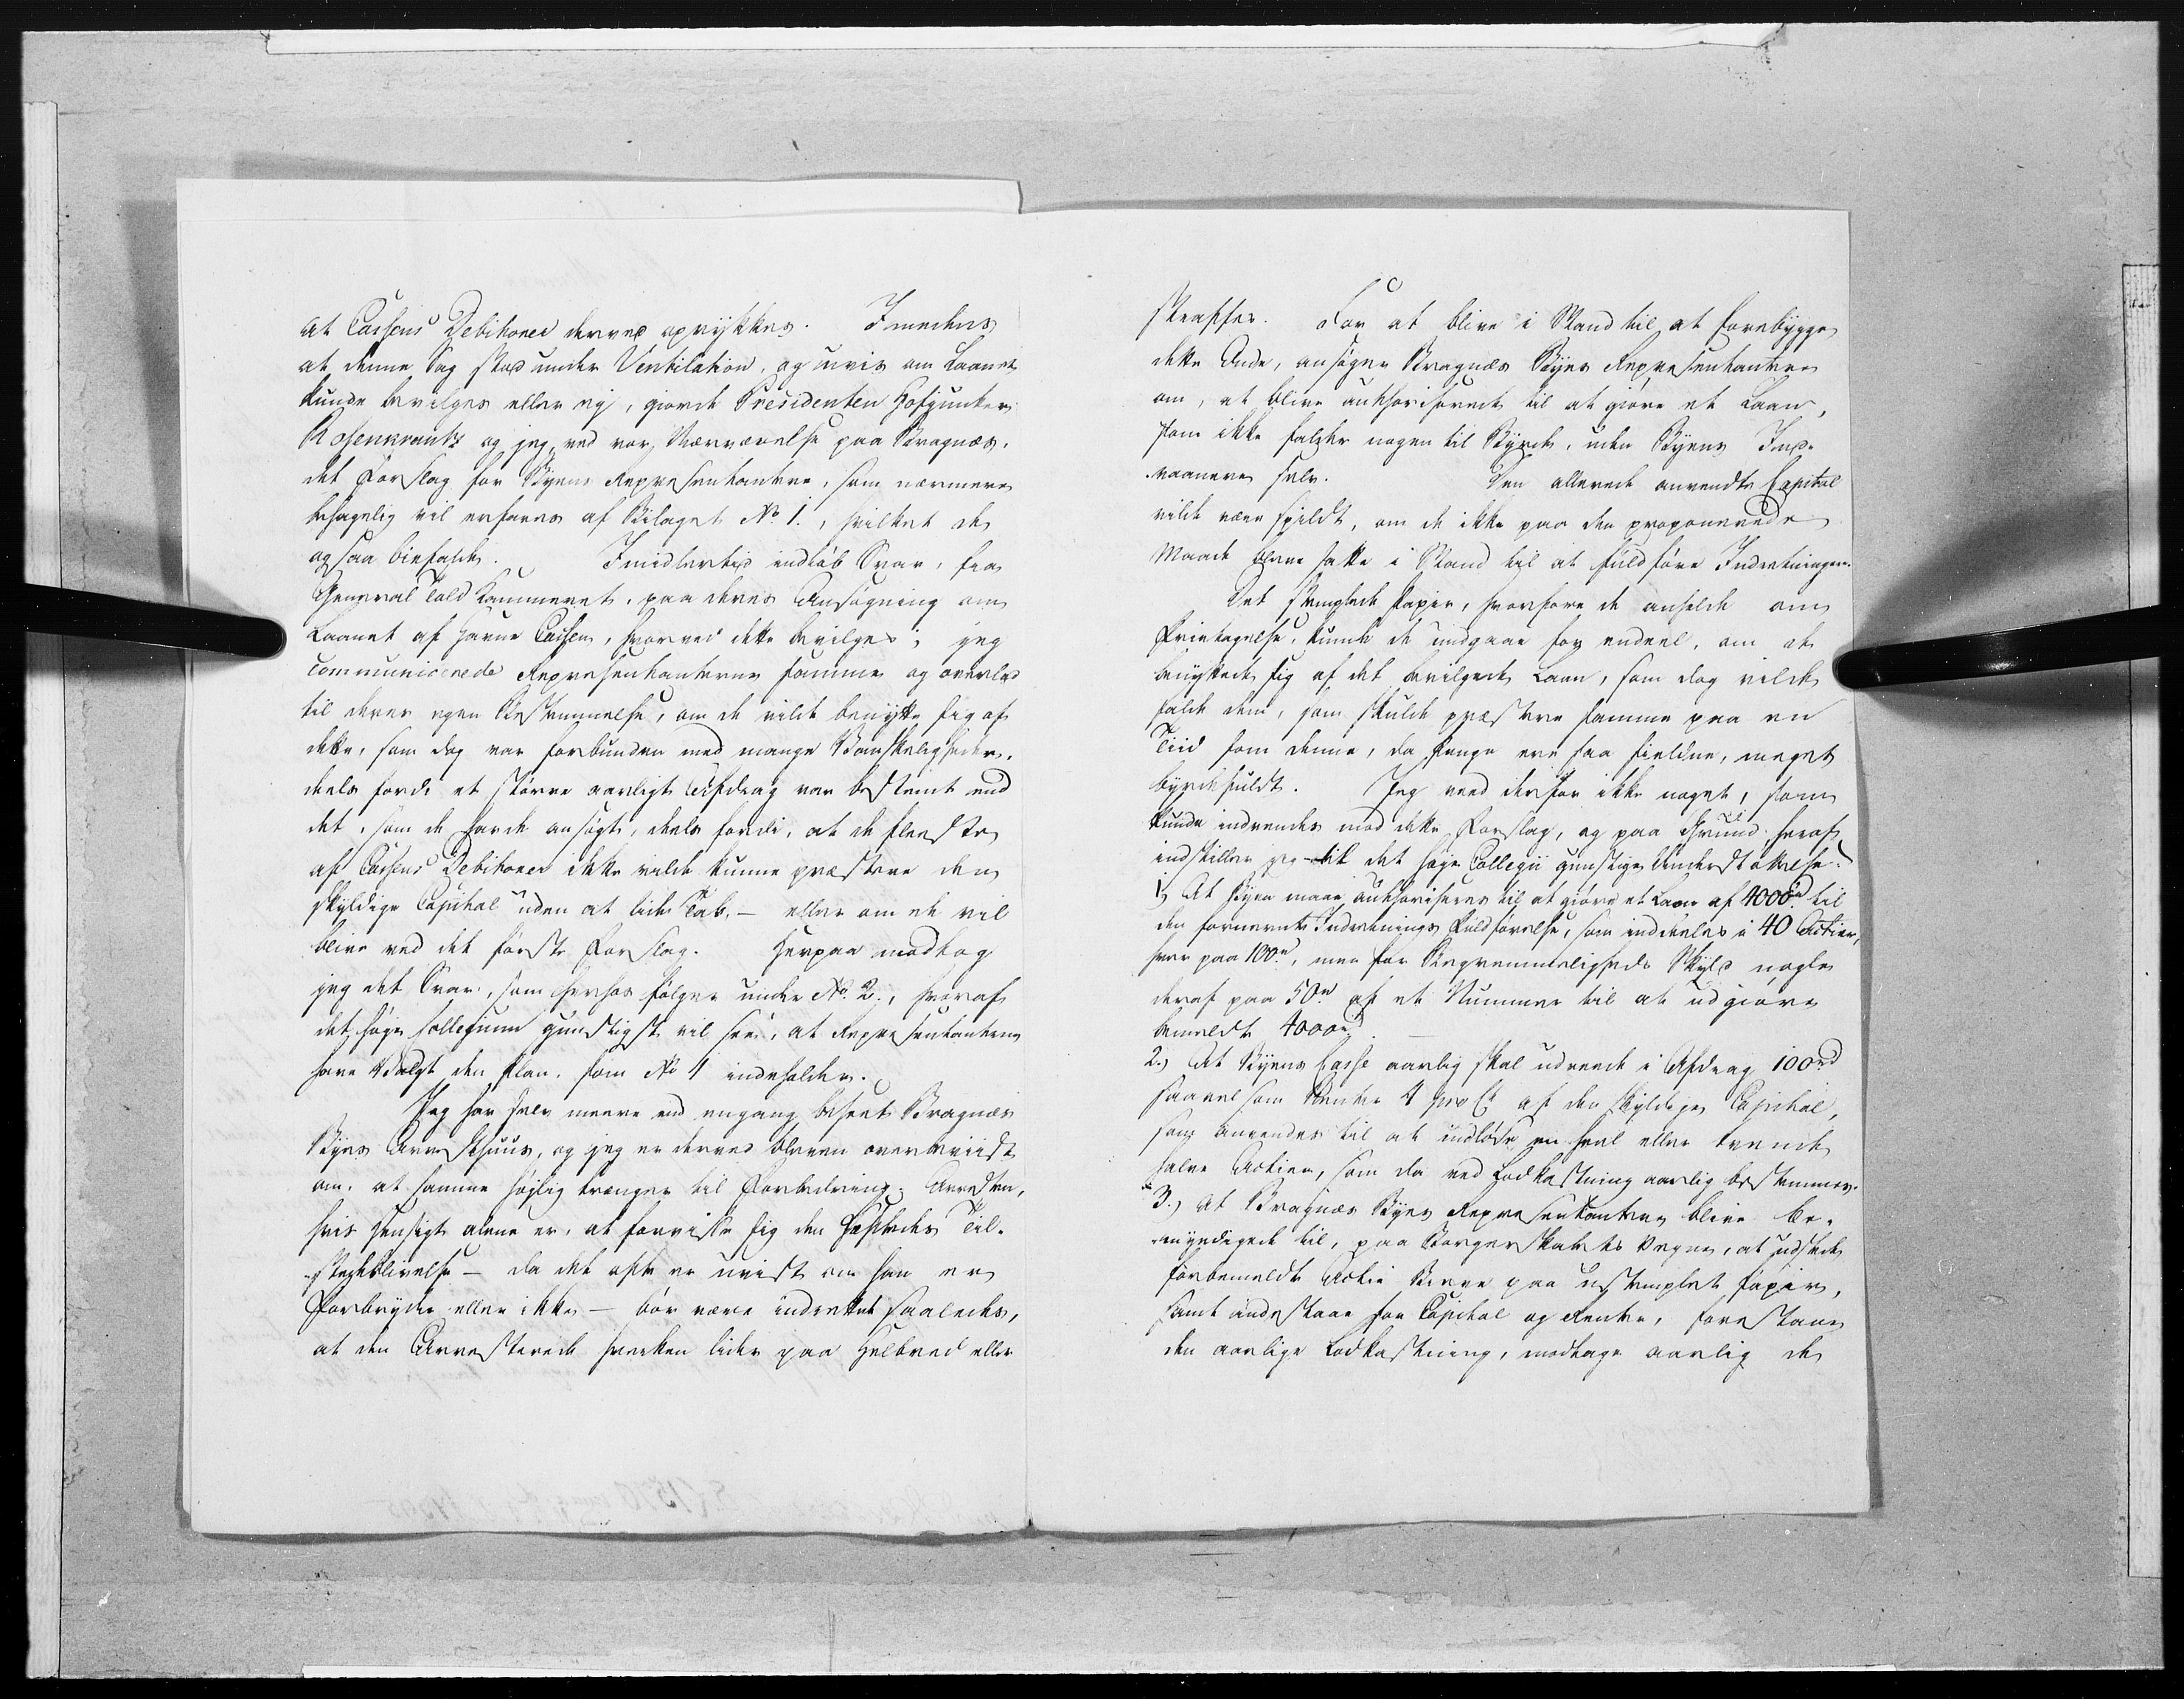 at Cassens Debitorer derved oprykkes. Imedens
at denne Sag stod under Ventilation, og uvis om Laanet
kunde bevilges eller ej, giorde Presidenten Hofjunker
Rosenkrantz og jeg, ved vor Nærværelse paa Bragnæs,
det Forslag for Byens Repræsentantere, som nærmere
behagelig vil erfares af Bilaget No 1., hvilket de
og saa bifaldt. Imidlertid indløb Svar, fra
General Told Kammeret, paa deres Ansøgning om
Laanet af Havne Cassen, hvorved dette bevilges; jeg
communicerede Repræsentanterne samme og overlod
til deres egen Bestemmelse, om de vilde benytte sig af
dette, som dog var forbunden med mange Vanskeligheder,
deels fordi et større aarligt Afdrag var bestemt end
det, som de havde ansøgt, deels fordi, at de fleeste
af Cassens Debitorer ikke vilde kunne præstere den
skyldige Capital uden at lide Tab, — eller om de vil
blive ved det første Forslag. Herpaa modtog
jeg det Svar, som herhos følger under No. 2., hvoraf
det høje Collegium gunstigst vil see, at Repræsentanterne
have Valgt den Plan, som No 1 indeholder.
Jeg har selv meere end engang beseet Bragnæs
Byes Arresthuus, og jeg er derved bleven overbeviist
om, at samme højlig trænger til Forbedring. Arresten,
hvis Hensigt alene er, at forvisse sig den Hæftedes Til-
stedeblivelse — da det ofte er uvist om han er
Forbryder eller ikke — bør være indrettet saaledes,
at den Arresterede hverken lider paa Helbred eller
Kræfter. For at blive i Stand til at forebygge
dette Onde, ansøger Bragnæs Byes Repræsentantere
om, at blive authoriserede til at giøre et Laan,
som ikke falder nogen til Byrde, uden Byens Ind-
vaanere selv. Den allerede anvendte Capital
vilde være spildt, om de ikke paa den proponerede
Maade bleve satte i Stand til at fuldføre Indretningen.
Det stemplede Papir, hvorfore de anholdt om
Fritagelse, kunde de undgaae for endeel, om de
benyttede sig af det bevilgede Laan, som dog vilde
falde dem, som skulde præstere samme paa en
Tiid som denne, da Penge ere saa sieldne, meget
byrdefuldt. Jeg veed derfor ikke noget, som
kunde indvendes mod dette Forslag, og paa Grund heraf
indstiller jeg til det høje Collegii gunstige Understøttelse:
1, At Byen maae authoriseres til at giøre et Laan af 4000rd til
den fornævnte Indretnings Fuldførelse, som inddeeles i 40 Actier,
hver paa 100rd, men for Beqvemmeligheds Skyld nogle
deraf paa 50rd af et Nummer til at udgiøre
bemeldte 4000rd.
2.) At Byens Casse aarlig skal udrede i Afdrag 100rd
saavelsom Renter 4 pro Ct af den skyldige Capital,
som anvendes til at indløse en heel eller tvende
halve Actier, som da ved Lodkastning aarlig bestemmes.
3.) At Bragnæs Byes Repræsentantere blive be-
myndigede til, paa Borgerskabets Vegne, at udstede
forbemeldte Actie Breve paa ustemplet Papir,
samt indestaae for Capital og Renter, forestaae
den aarlige Lodkastning, modtage aarlig de